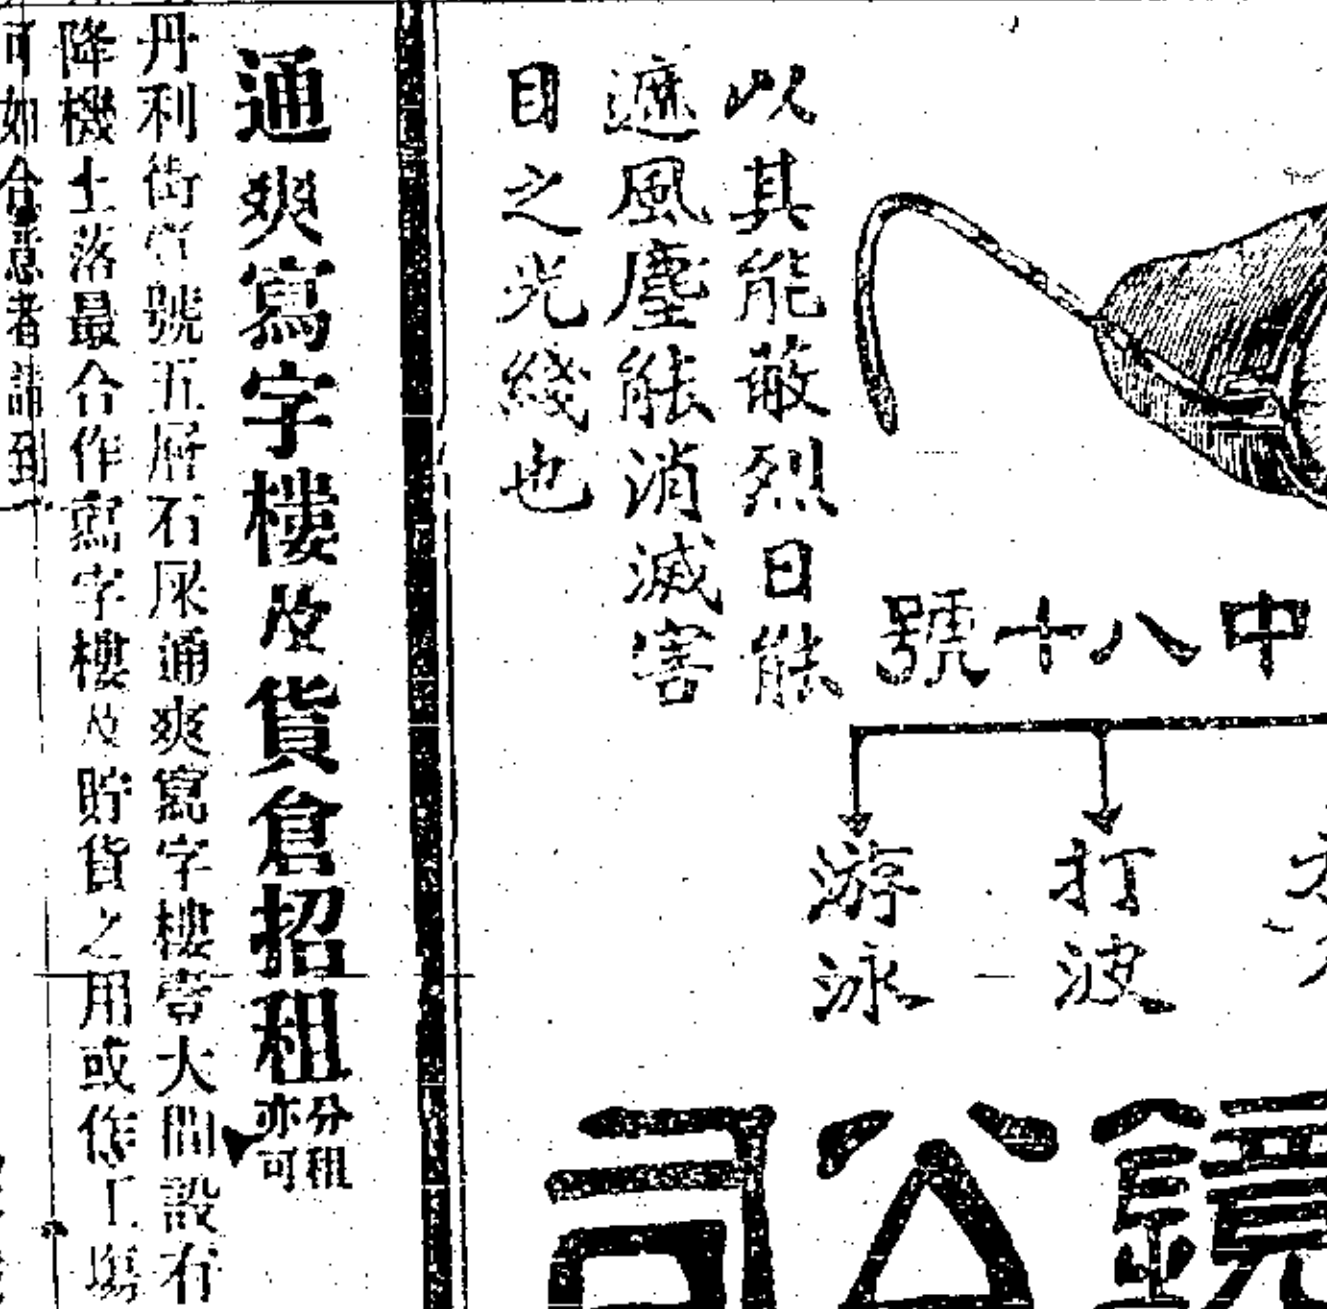 以其能蔽烈日能
遮風塵能消滅害
目之光綫也
中八十號
打波
游泳
鏡公司
通爽寫字樓及貨倉招租
分租
亦可
丹利街壹號五層石屎通爽寫字樓壹大間設有
降機上落最合作寫字樓及貯貨之用或作工塲
可如合意者請到